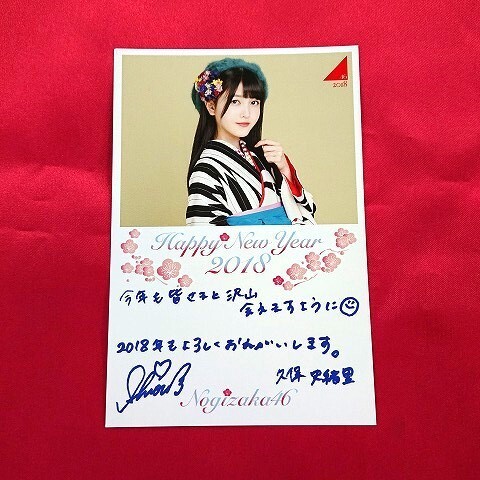 46
2018
Happy New Year
2018
今年も皆さまと沢山
会えますように
2018年もよろしくおねがいします。
久保 史緒里
Nogizaka46